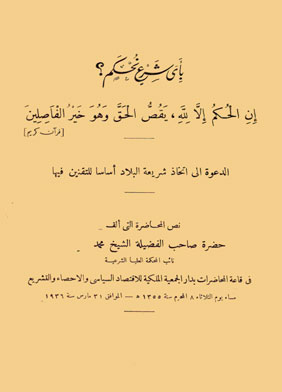 بأى شرع نُحكم ؟
إِنِ الْحُكْمُ إِلَّا لِلَّهِ ، يَقُصُّ الْحَقَّ وَهُوَ خَيْرُ الْفَاصِلِينَ
[قرآن كريم]
الدعوة الى اتخاذ شريعة البلاد أساسا للتقنين فيها
نص المحاضرة التى ألقى
حضرة صاحب الفضيلة الشيخ محمد
نائب المحكمة العليا الشرعية
فى قاعة المحاضرات بدار الجمعية الملكية للاقتصاد السياسى والاحصاء والتشريع
مساء يوم الثلاثاء ٨ المحرم سنة ١٣٥٥ هـ — الموافق ٣١ مارس سنة ١٩٣٦